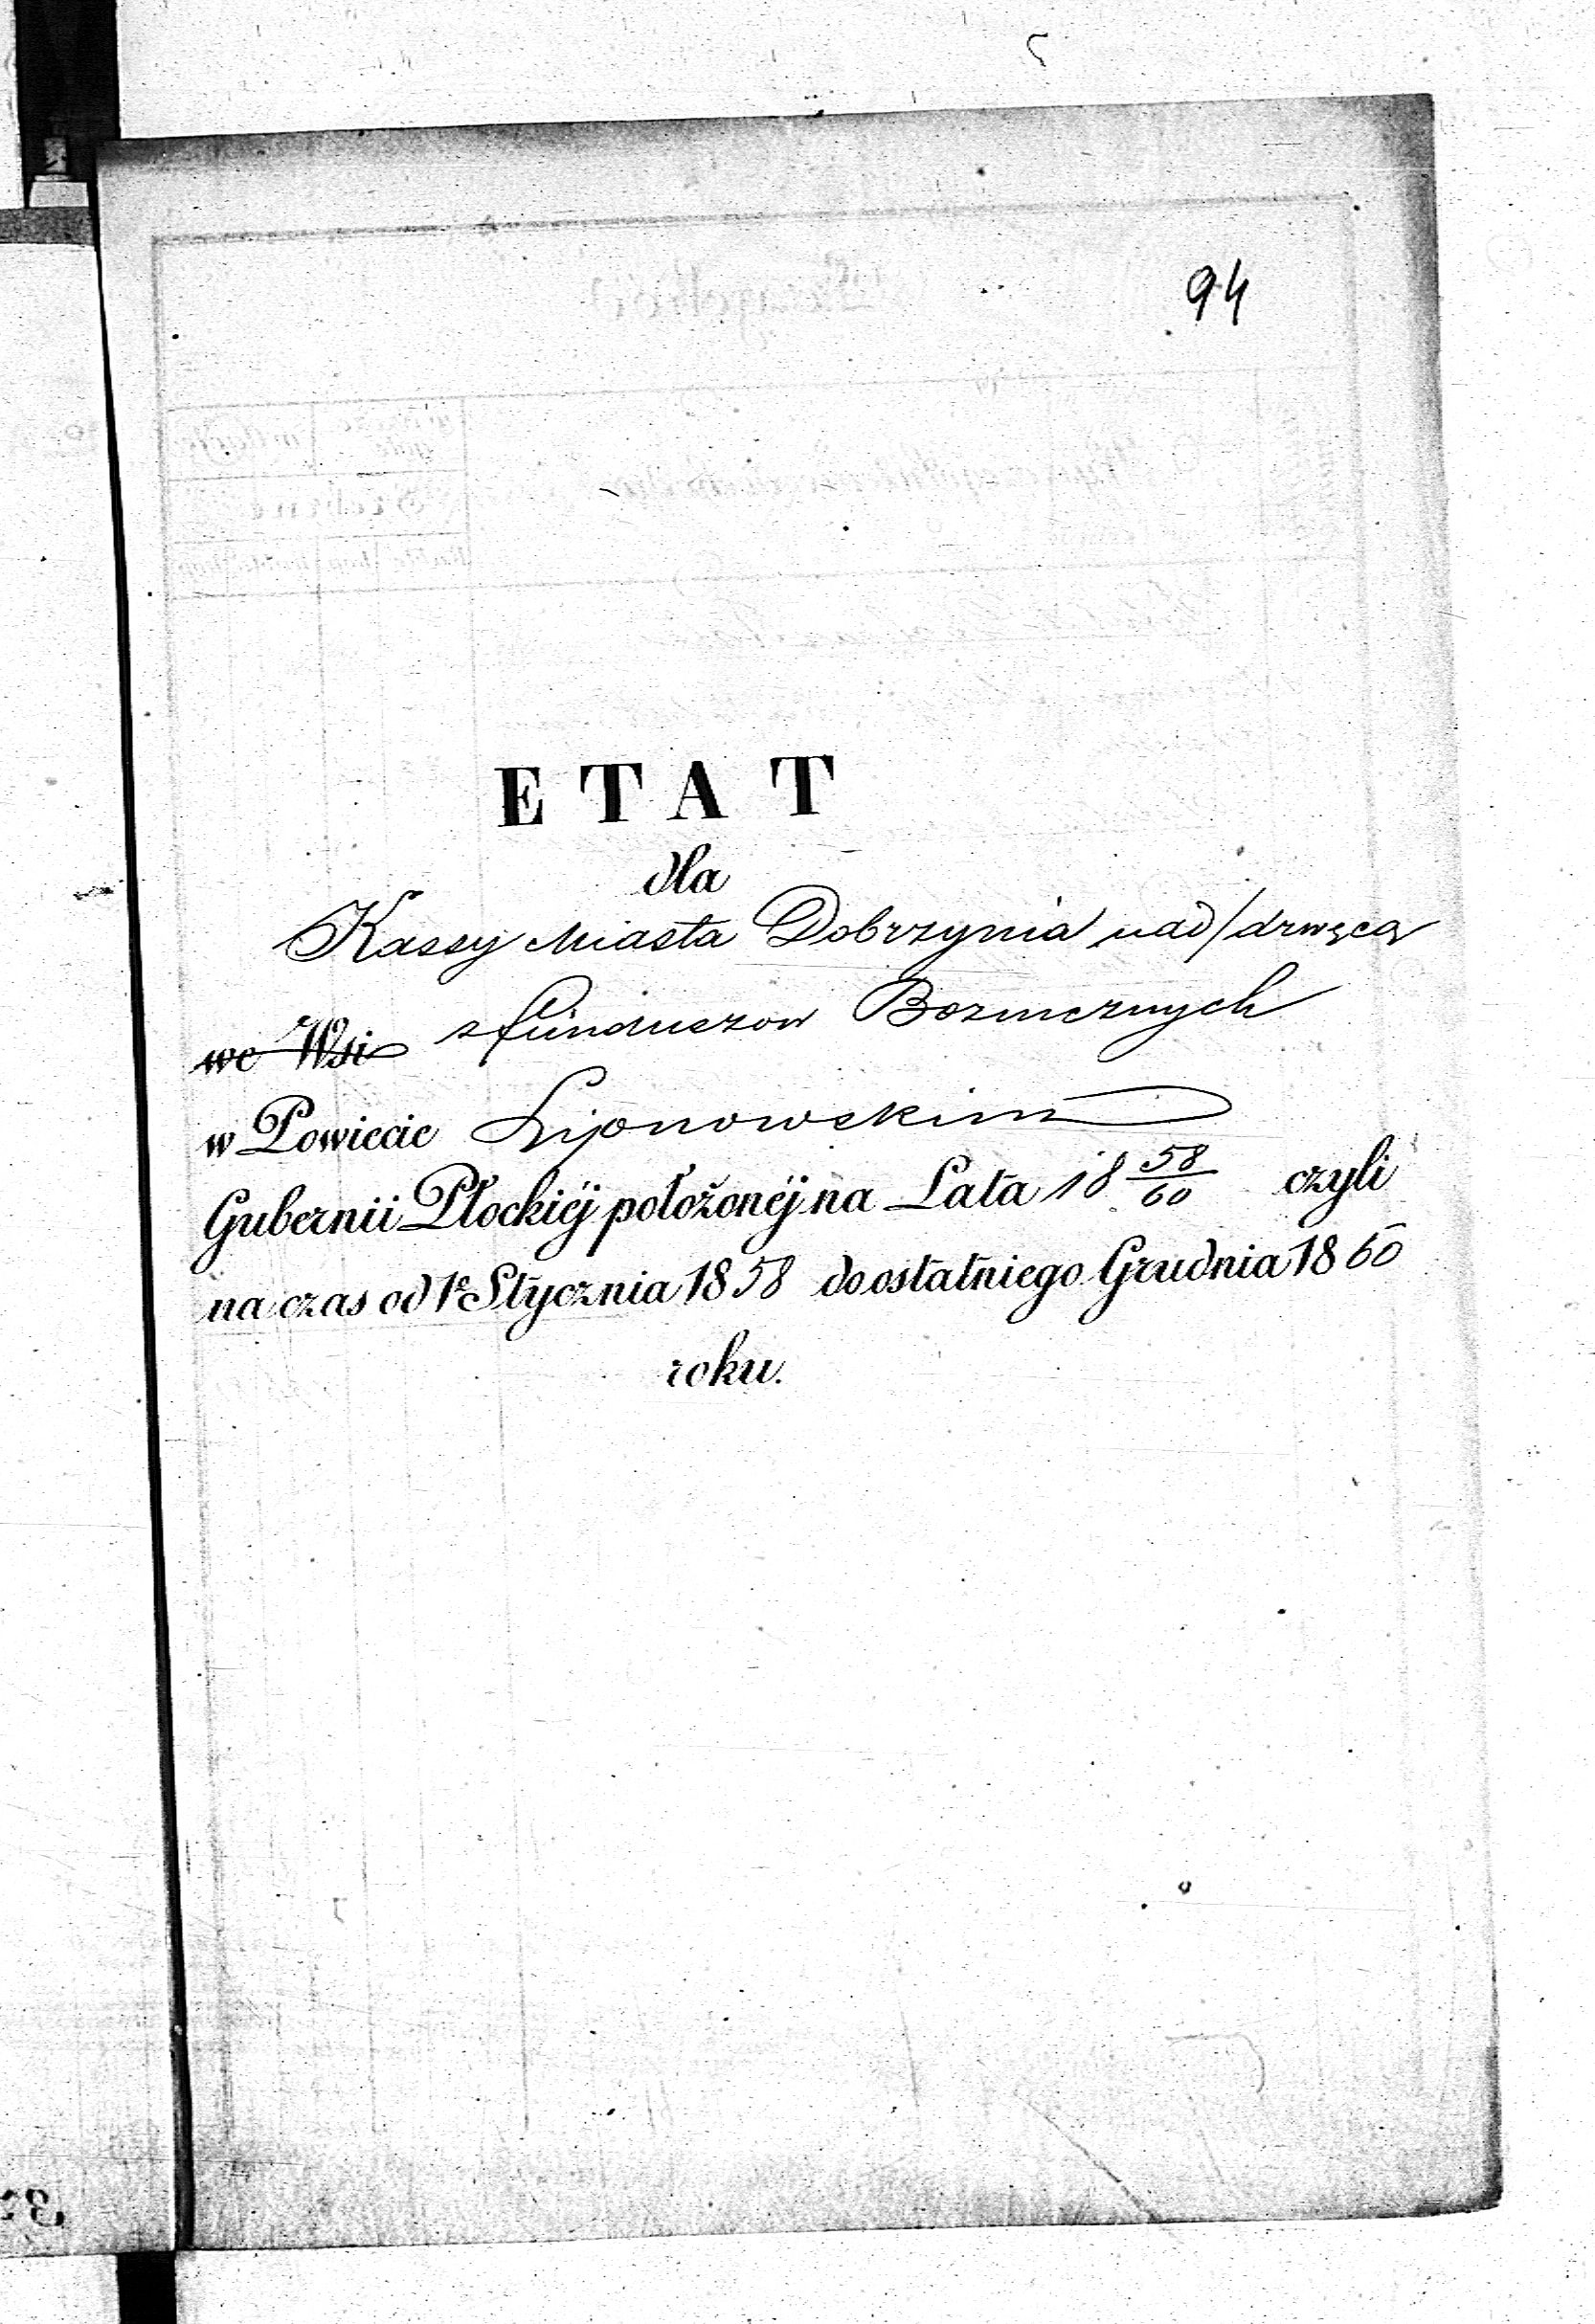 94
ETAT
dla
Kassy Miasta Dobrzynia nad/drwęcą
we Wsi z funduszow Boznicznych
w Powiecie Lipnowskim
Gubernii Płockiéj położonéj na Lata 18 58/60 czyli
na czas od 1º Stycznia 1858 do ostatniego Grudnia 1860
roku.